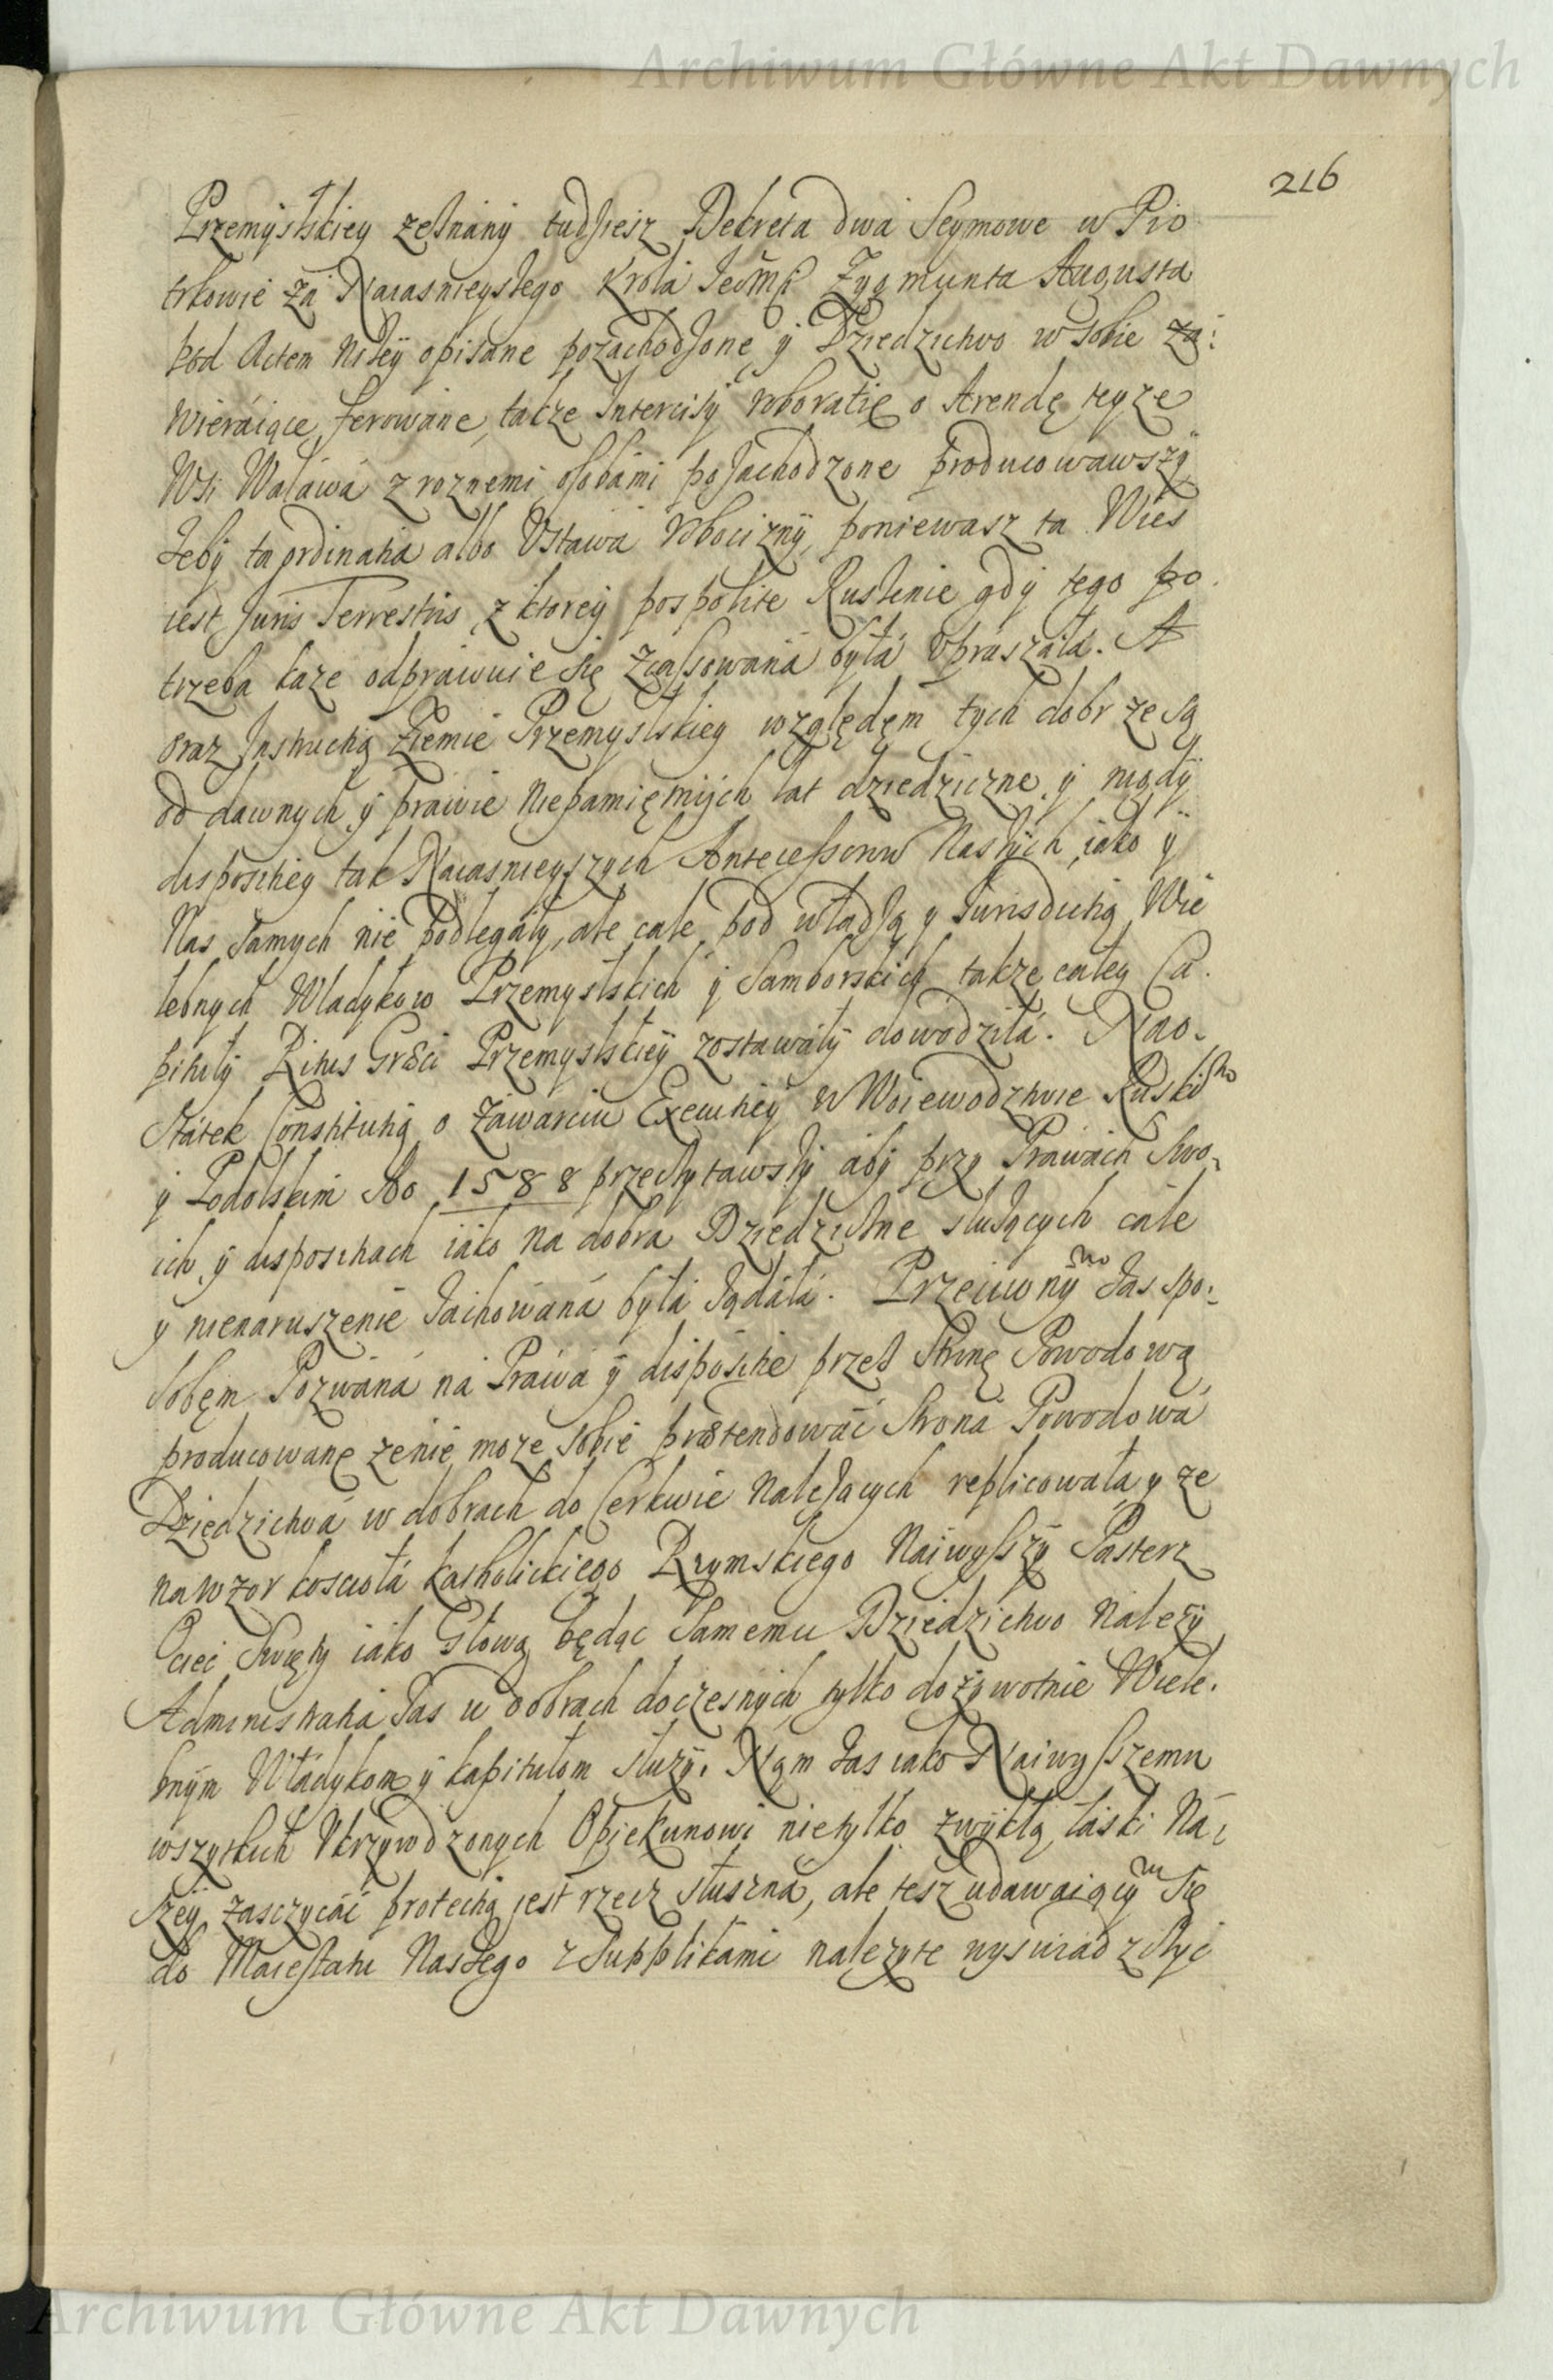 Archiwum Główne Akt Dawnych
216
Przemyslskiey zeznany tudziesz Dekreta dwa Seymowe w Pio
trkowie za Naiasnieyszego Krola Jeo Mći Zygmunta Augusta
pod Actem niżey opisane pozachodzone y Dziedzictwo w sobie za:
wieraiące ferowane, także Intercisy roboratię o Arendę teyze
Wsi Waława z roznemi osobami pozachodzone producowawszy
żeby ta ordinatia albo Ustawa Robocizny, poniewasz ta Wies
iest Juris Terrestris, z ktorey pospolite Ruszenie gdy tego po
trzeba kaze odprawuie się zcassowana była upraszała. A
oraz Instructią Ziemie Przemyslskiey względem tych dobr ze są
od dawnych y prawie niepamiętnych lat dziedziczne y nigdy
disposiciey tak Naiasnieyszych Antecessorow Naszych, iako y
Nas samych nie podlegały, ale cale pod władzą y Jurisdictią Wie
lebnych Wladykow Przemyslskich y Samborskich także całey Ca.
pituły Ritus Græci Przemyslskiey zostawały dowodziła. Nao.
statek Constitutią o zawarciu Executiey w Woiewodztwie Ruskim
y Podolskim Ao 1588 przeczytawszy aby przy Prawach swo,
ich y dispositiach iako na dobra Dziedziczne służących cale
y nienaruszenie zachowana była żądała. Przeciwnym zas spo:
sobem Pozwana na Prawa y dispositie przez Stronę Powodową
producowane ze nie moze sobie prætendować Strona Powodowa
Dziedzictwa w dobrach do Cerkwie należących replicowała y ze
na wzor koscioła Katholickiego Rzymskiego Naiwyższy Pasterz
Ociec Swięty iako Głową będąc samemu Dziedzictwo należy
Administratia zas w dobrach doczesnych tylko dożywotnie Wiele.
bnym Władykom y kapitułom służy. Nam zas iako Naiwyższemu
wszystkich Ukrzywdzonych Opiekunowi nietylko zwykłą łaski Na:
szey zasczycać protectią jest rzecz słuszna, ale tesz udawaiącym się
do Maiestatu Naszego z Supplikami należyte wyswiadzczyć
Archiwum Główne Akt Dawnych